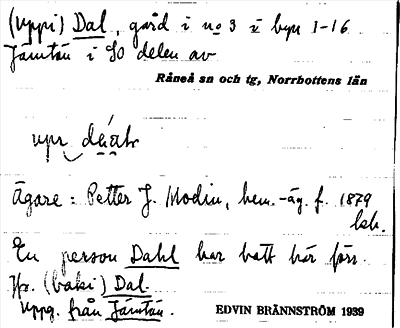 (uppi) Dal, gård i no 3 i byn 1-16
Jämtön i SO delen av
Råneå sn och tg, Norrbottens län
upi
Ägare: Petter J. Modin, hem.-äg. f. 1879
bsh.
En person Dahl har bott här förr.
Jfr. (baki) Dal.
Uppg. från Jämtön.
EDVIN BRÄNNSTRÖM 1939